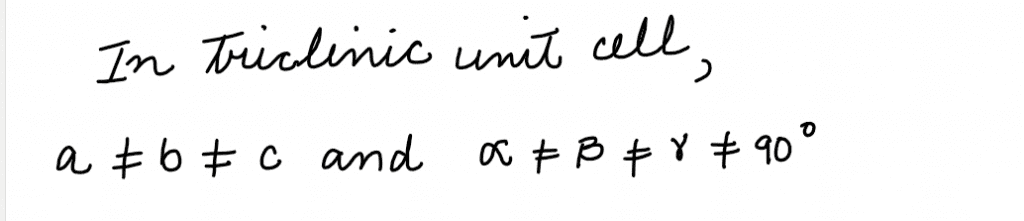 In triclinic unit cell,
a ≠ b ≠ c and α ≠ β ≠ γ ≠ 90°